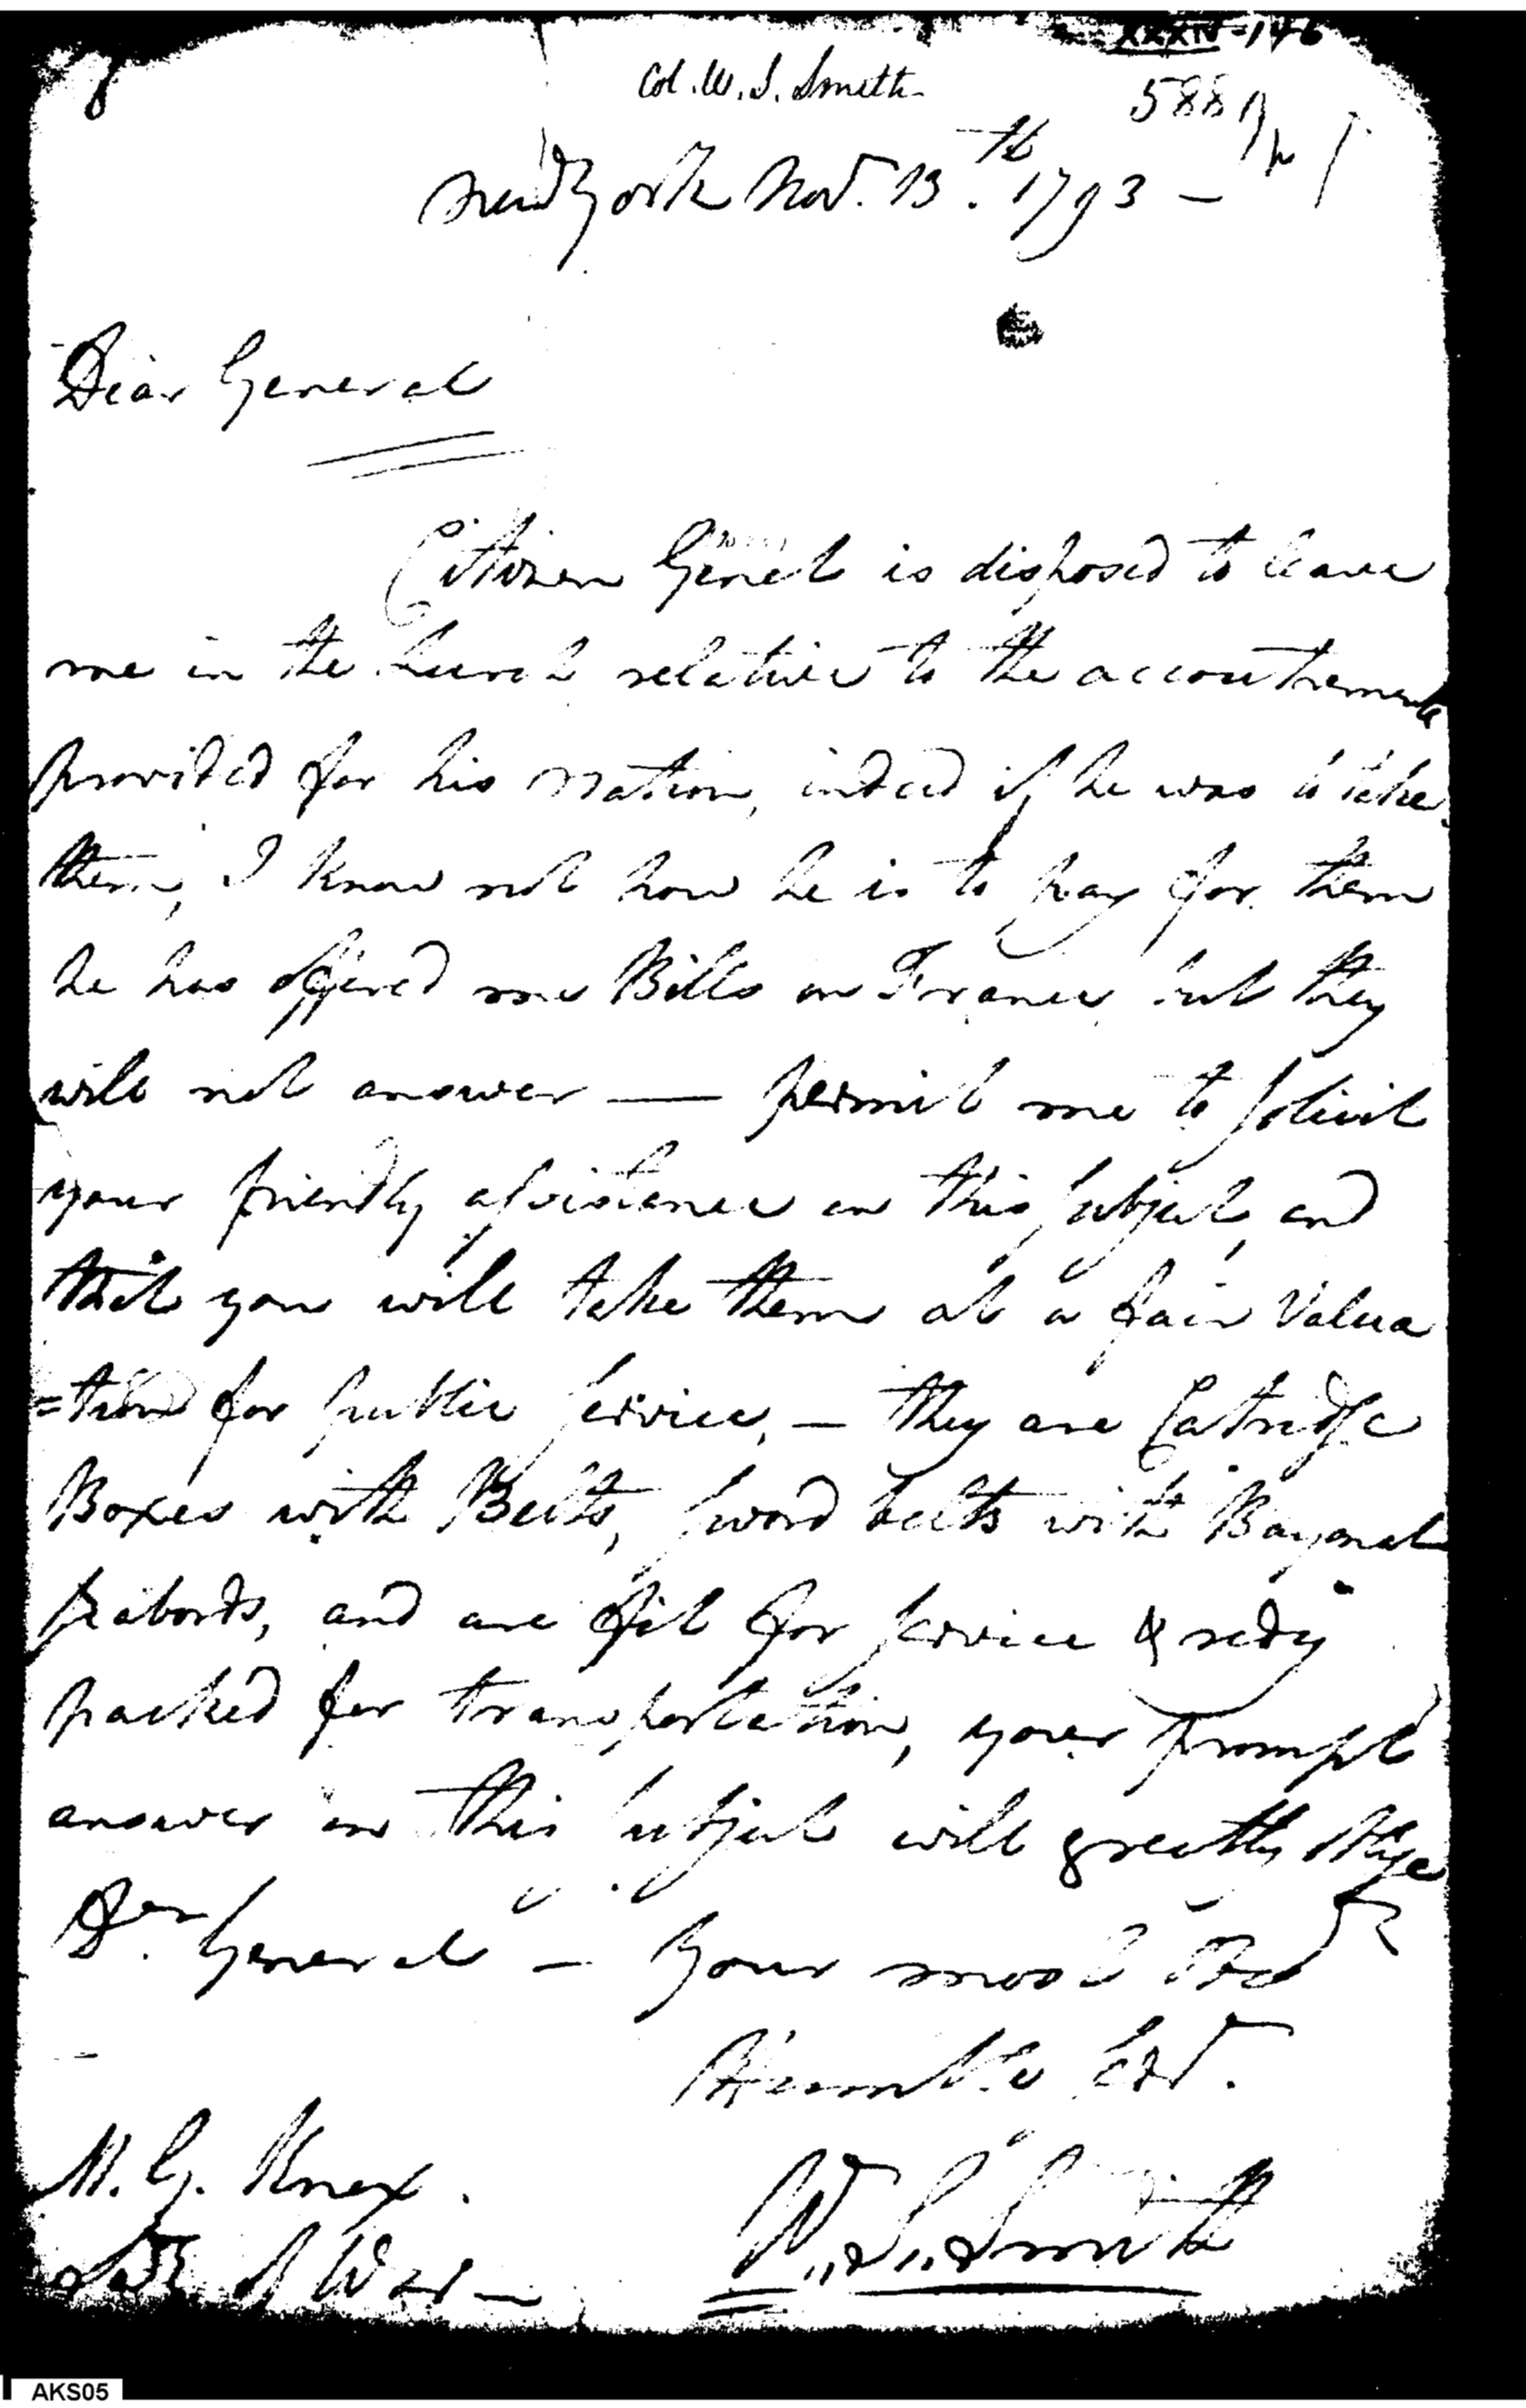 XXXIV-146
Col. W. S. Smith
588
New York Nov. 13.th 1793 –
Dear General
Citizen Genet is disposed to leave
me in the lurch relative to the accoutrements
provided for his Nation, indeed if he was to take
them, I know not how he is to pay for them
he has offered me Bills on France but they
will not answer — permit me to solicit
your friendly assistance on this subject, and
that you will take them at a fair Valua
=tion for public service, – they are Catridge
Boxes with Belts, sword belts with Bayonet
scabords, and are fit for service & redy
packed for transportation, your prompt
answer on this subject will greatly oblige
Dr. General – Your most Obed
Humble Servt.
M. G. Knox.
W. S. Smith
Secy of War –
AKS05